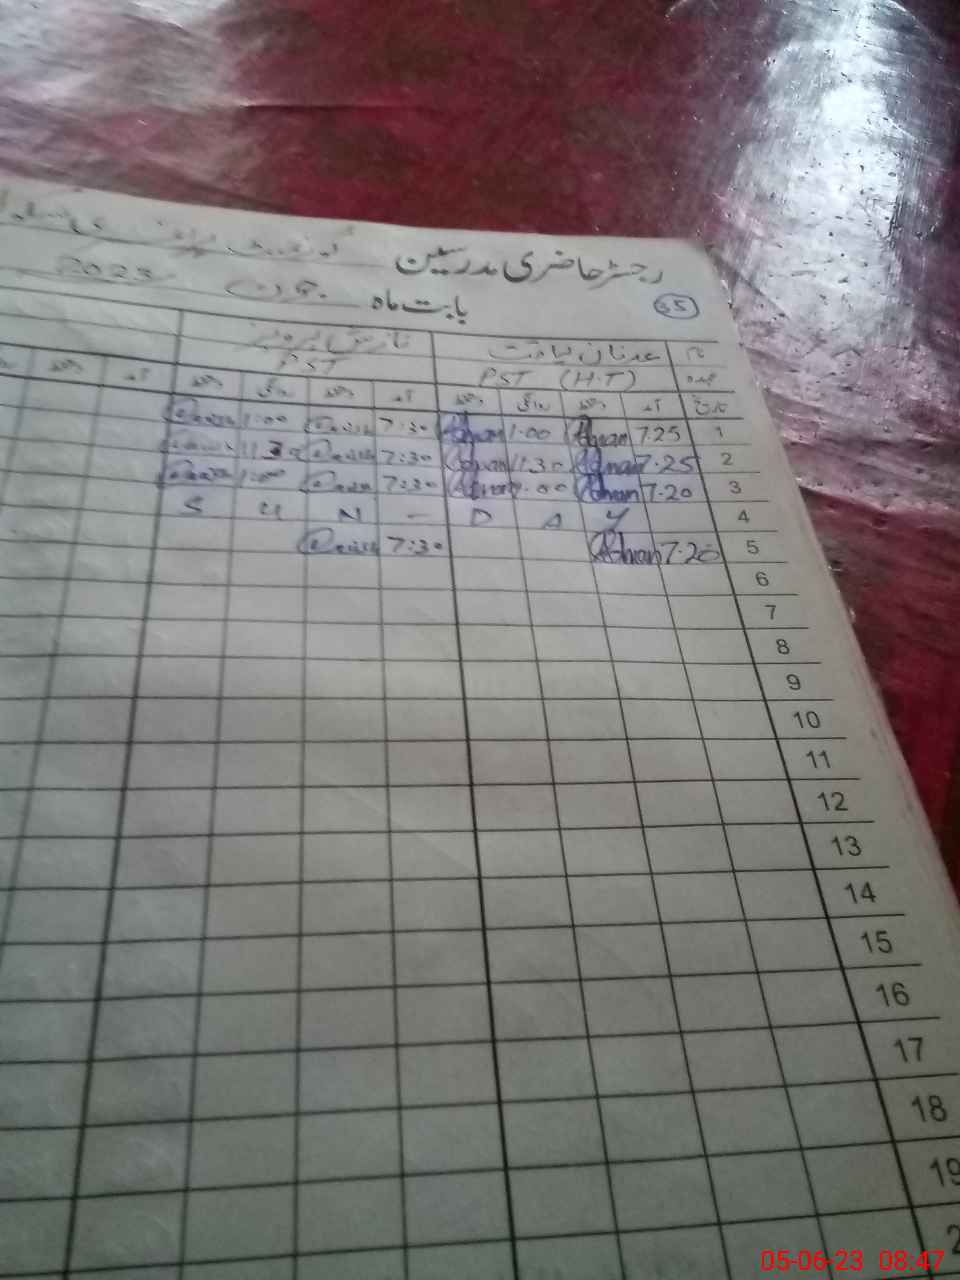 رجسٹر حاضری مدرسین
35
بابت ماہ جون 2023
نام عدنان لیاقت
عہدہ PST (H.T) PST
تاریخ آمد دستخط روانگی دستخط آمد دستخط روانگی دستخط آمد دستخط
1 7.25 Adnan 1.00 Adnan 7:30 1:00
2 7.25 Adnan 11.30 Adnan 7:30 11:30
3 7.20 Adnan 1.00 Adnan 7:30 1:00
4 S U N - D A Y
5 7.20 Adnan 7:30
6
7
8
9
10
11
12
13
14
15
16
17
18
19
2
05-06-23 08:47